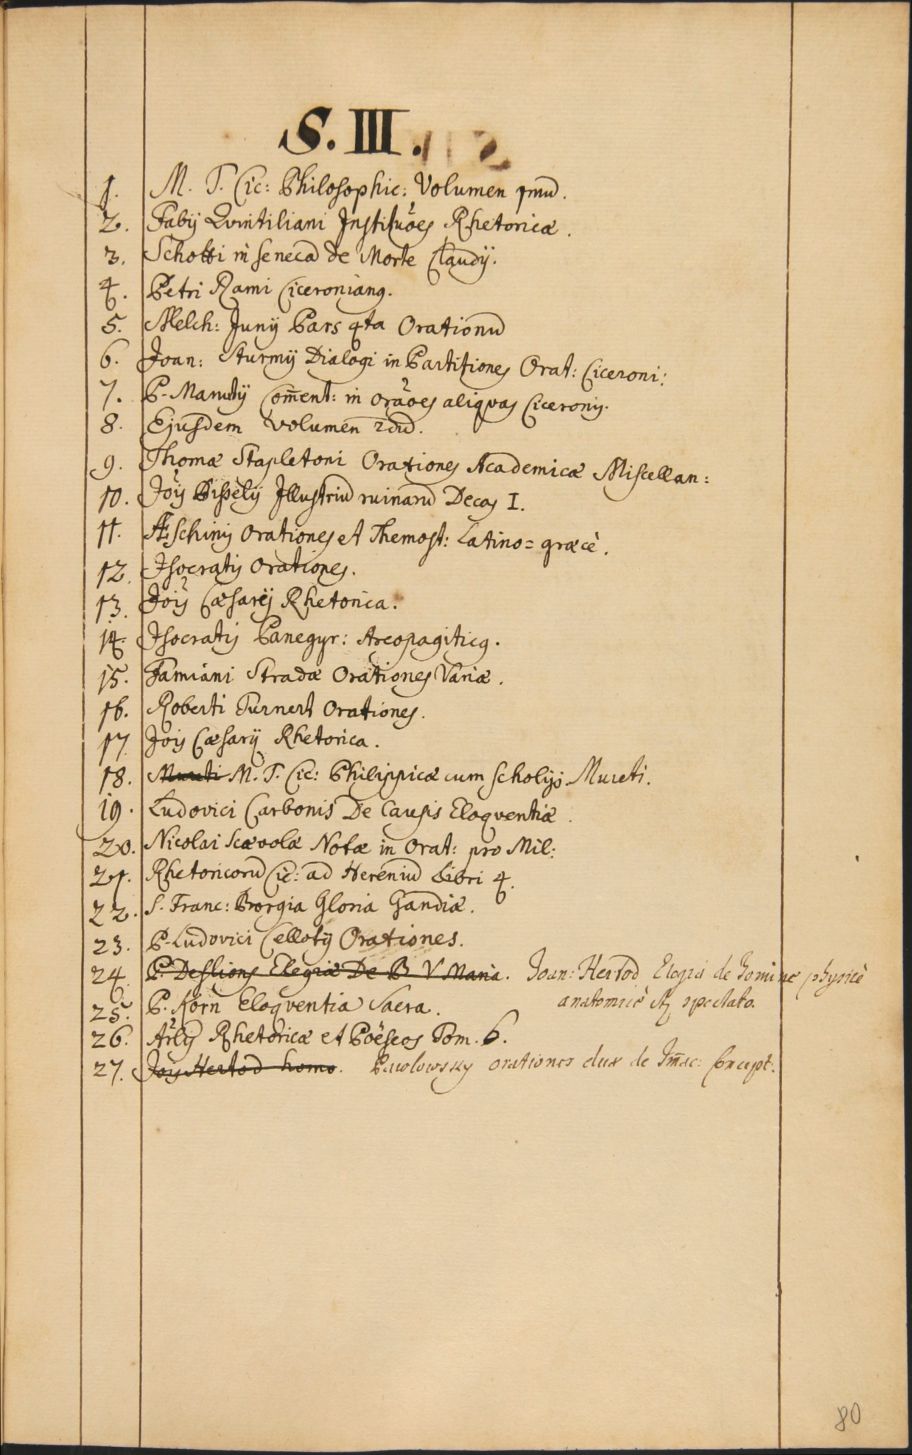 S. III.
1. M. T. Cic: Philosophic: Volumen 1mũ.
2. Fabij Qvintiliani Institũoes Rhetoricæ.
3. Schotti in Senecã De Morte Claudij.
4. Petri Rami Ciceronianq.
5. Melch: Junij Pars 4ta Orationũ
6. Joan: Sturmij Dialogi in Partitiones Orat: Ciceroni:
7. P. Manutij Com̃ent: in orãoes aliqvas Ciceronis.
8. Ejusdem Volumen 2dũ.
9. Thomæ Stapletoni Orationes Academicæ Miscellan:
10. Jõis Bisselij Illustriũ ruinarũ Decas I.
11. Æschinis Orationes et Themost: Latino=græcè.
12. Isocratis Orationes.
13. Jõis Cæsarij Rhetorica.
14. Isocratis Panegyr: Areopagiticq.
15. Famiani Stradæ Orationes Variæ.
16. Roberti Turneri Orationes.
17. Jõis Cæsarij Rhetorica.
18. Mureti M. T. Cic: Philippicæ cum Scholijs Mureti.
19. Ludovici Carbonis De Causis Eloqventiæ.
20. Nicolai Scævolæ Notæ in Orat: pro Mil:
21. Rhetoricorũ Cic: ad Hereniũ Libri 4.
22. S. Franc: Borgia Gloria Gandiæ.
23. P. Ludovici Cellotij Orationes.
24. P. Deslions Elegiæ De B V Maria. Joan: Hertod Elogia de Homine physicè
anatomicè et spectato.
25. P. Korn Eloqventia Sacra.
26. Artis Rhetoricæ et Poëseos Tom. 6.
27. Jõis Hertod homo. Pawlowsky orationes duæ de Im̃ac: Concept:
80